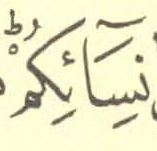 نِسَآئِكُمْؕ